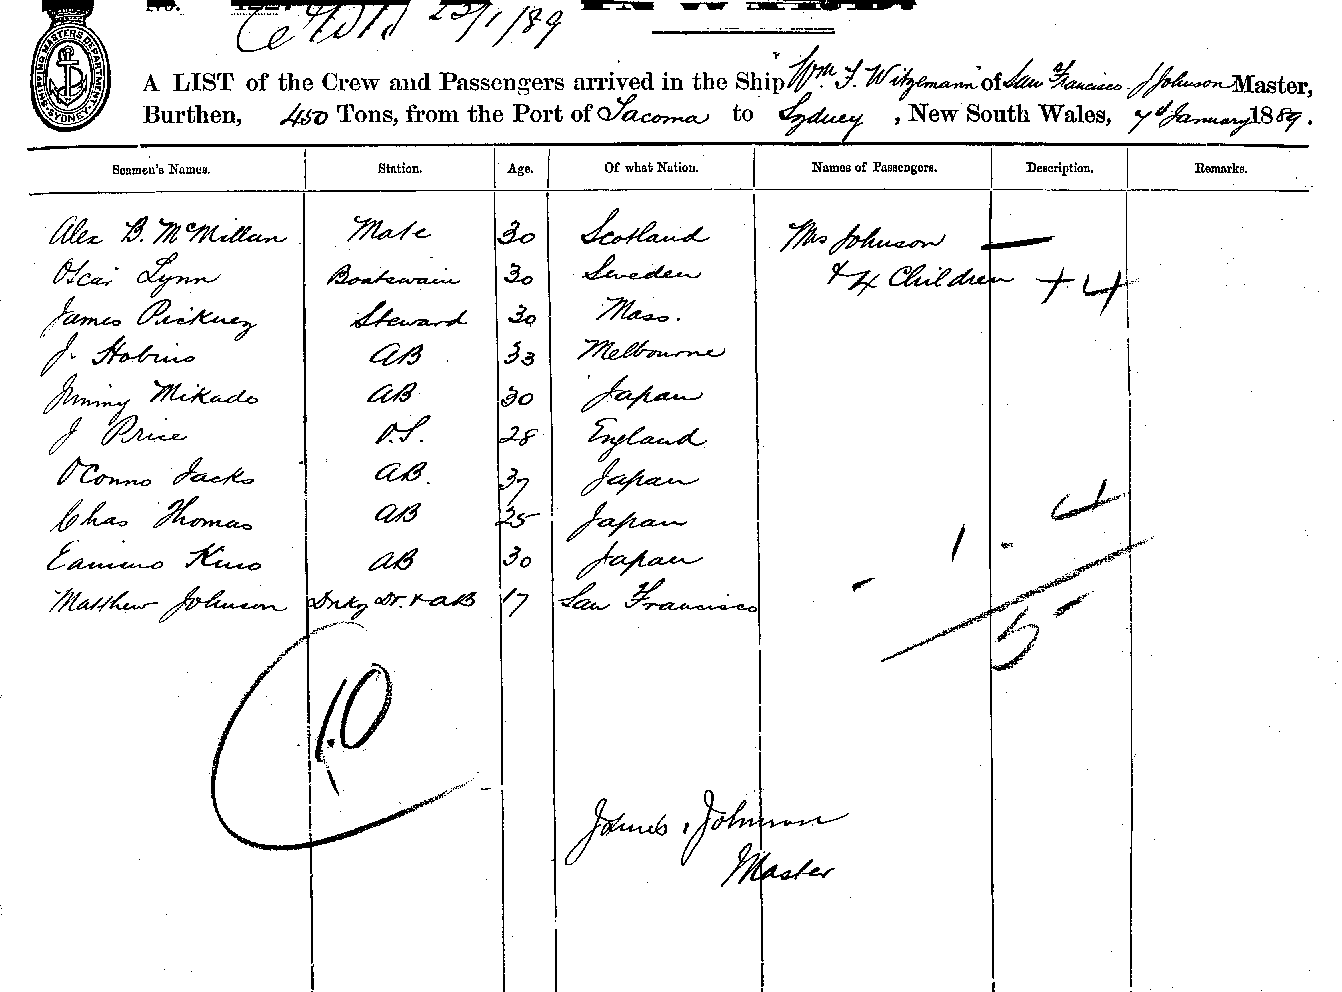 23/1/89
A LIST of the Crew and Passengers arrived in the Ship "Wm. F. Witzemann" of San Francisco J Johnson Master,
Burthen, 450 Tons, from the Port of Tacoma to Sydney, New South Wales, 7th January 1889.
SHIPPING MASTERS DEPARTMENT SYDNEY
Seamen's Names. Station. Age. Of what Nation. Names of Passengers. Description. Remarks.
Alex B. McMillan Mate 30 Scotland Mrs Johnson —
Oscar Lynn Boatswain 30 Sweden & 4 Children + 4
James Pickney Steward 30 Mass.
J. Hobins AB 33 Melbourne
Jimmy Mikado AB 30 Japan
J Price O.S. 28 England
OConno Jacks AB. 37 Japan
Chas Thomas AB 25 Japan
1 - 4
Kino AB 30 Japan
Matthew Johnson Dnky Dr. & AB 17 San Francisco
5 -
10
James Johnson
Master